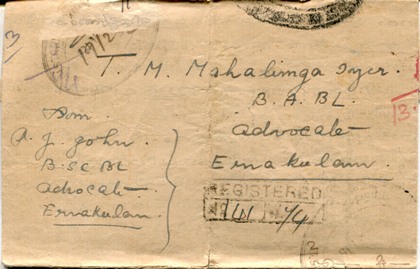 T. M. Mahalinga Iyer.
B. A. BL.
Advocate
Ernakulam.
From
A. J. John.
B. Sc BL
Advocate
Ernakulam.
REGISTERED